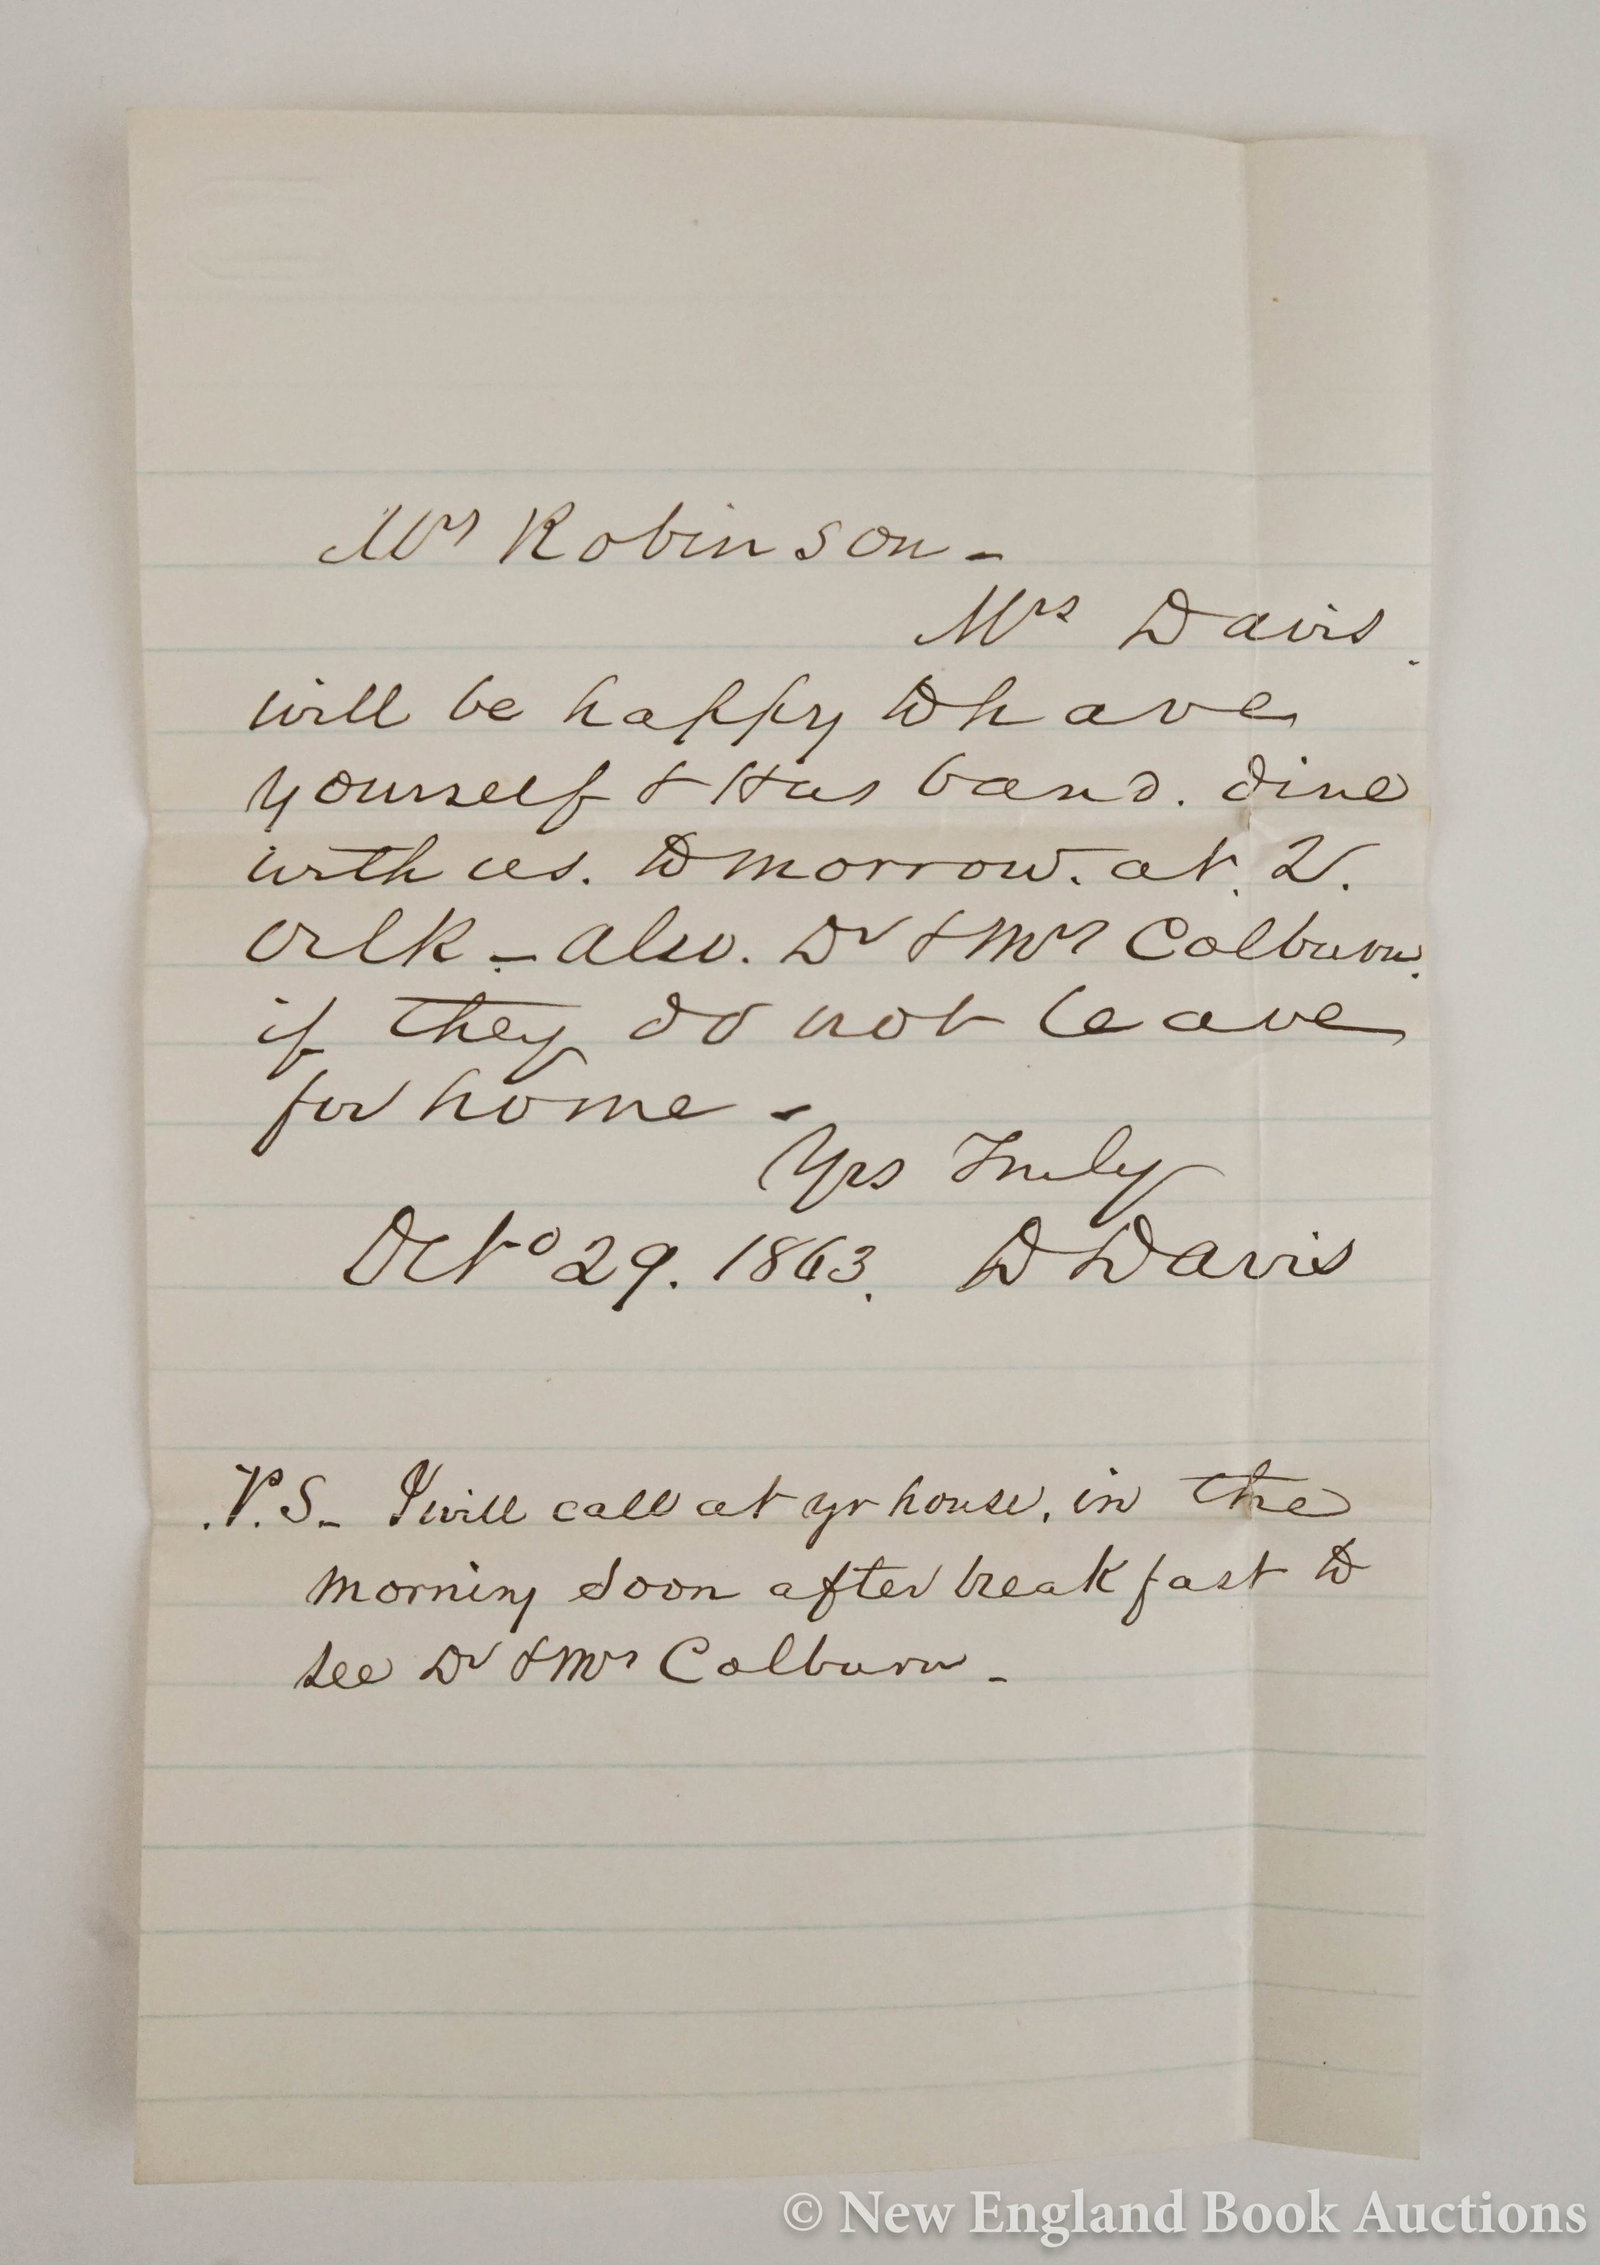 Mrs Robinson -
Mrs Davis
will be happy to have
yourself & Husband. dine
with us. tomorrow. at. 2.
Clk - also. Dr & Mrs Colburn.
if they do not leave
for home -
Yrs Truly
Octo 29. 1863. D Davis
.P.S- I will call at yr house, in the
morning soon after breakfast to
see Dr & Mrs Colburn -
© New England Book Auctions